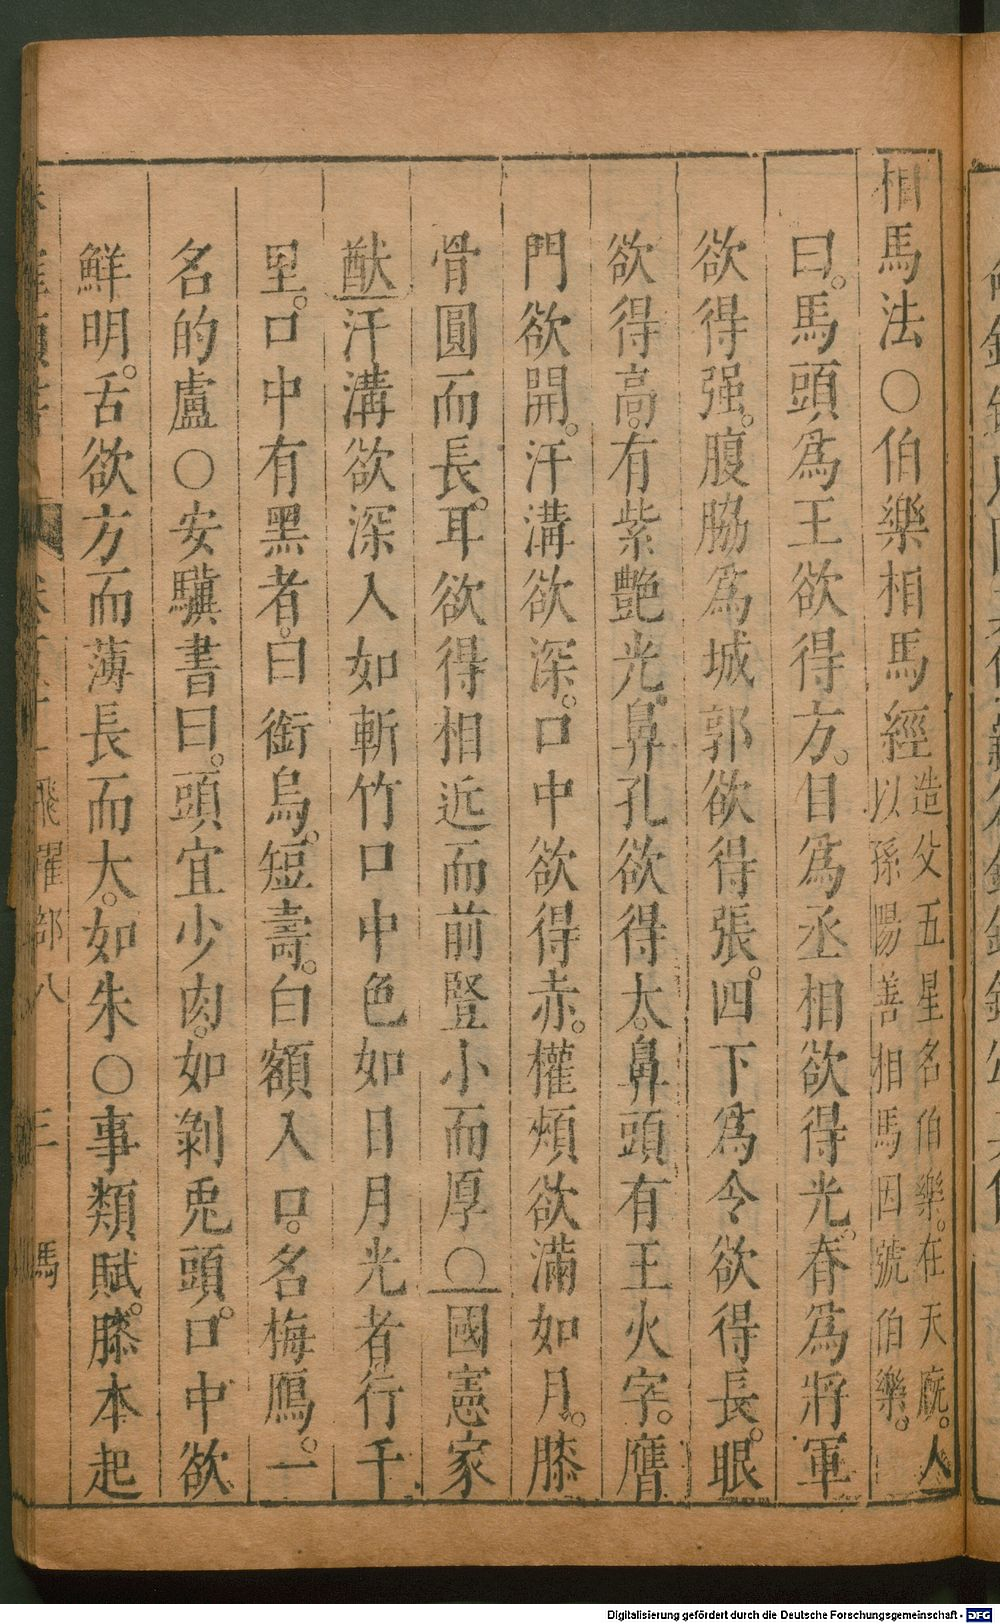 相馬法○伯樂相馬經造父五星名伯樂。在天廐。人以孫陽善相馬因號伯樂。
曰。馬頭爲王欲得方。目爲丞相欲得光。脊爲將軍
欲得强。腹脇爲城郭欲得張。四下爲令欲得長。眼
欲得高。有紫艷光。鼻孔欲得大。鼻頭有王火字。膺
門欲開。汗溝欲深。口中欲得赤。權頰欲滿如月。膝
骨圓而長。耳欲得相近而前豎小而厚○國憲家
猷汗溝欲深入如斬竹口中色如日月光者行千
里。口中有黑者。曰銜烏。短壽。白額入口。名梅鴈。一
名的盧○安驥書曰。頭宜少肉。如剝兎頭。口中欲
鮮明。舌欲方而薄長而大。如朱○事類賦。膝本起
飛躍部八 三 馬
Digitalisierung gefördert durch die Deutsche Forschungsgemeinschaft - DFG